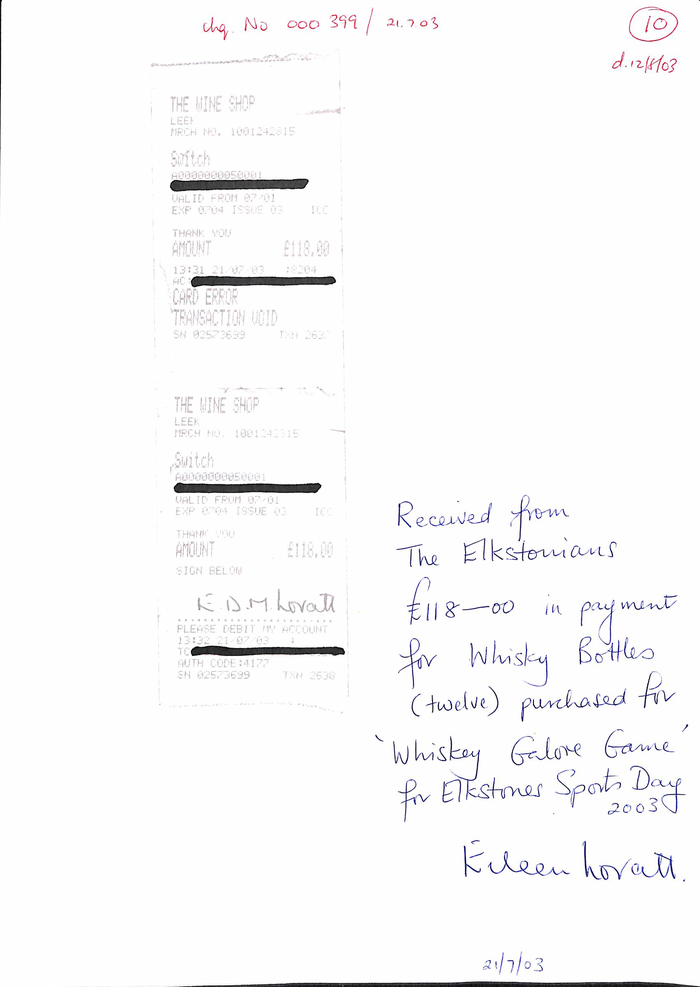 chq. No 000 399 / 21.7.03
10
d.12/8/03
THE WINE SHOP
LEEK
MRCH NO. 1001242815
Switch
A0000000050001
VALID FROM 07/01
EXP 0704 ISSUE 03 ICC
THANK YOU
AMOUNT £118.00
13:31 21/07/03
CARD ERROR
TRANSACTION VOID
SN 02573699 TXN 2637
THE WINE SHOP
LEEK
MRCH NO. 1001242815
Switch
A0000000050001
VALID FROM 07/01
EXP 0704 ISSUE 03 ICC
THANK YOU
AMOUNT £118.00
SIGN BELOW
E.D.M Lovatt
PLEASE DEBIT MY ACCOUNT
13:32 21/07/03
AUTH CODE:4177
SN 02573699 TXN 2638
Received from
The Elkstonians
£118—00 in payment
for Whisky Bottles
(twelve) purchased for
'Whiskey Galore Game'
for Elkstones Sports Day
2003
Eileen Lovatt.
21/7/03